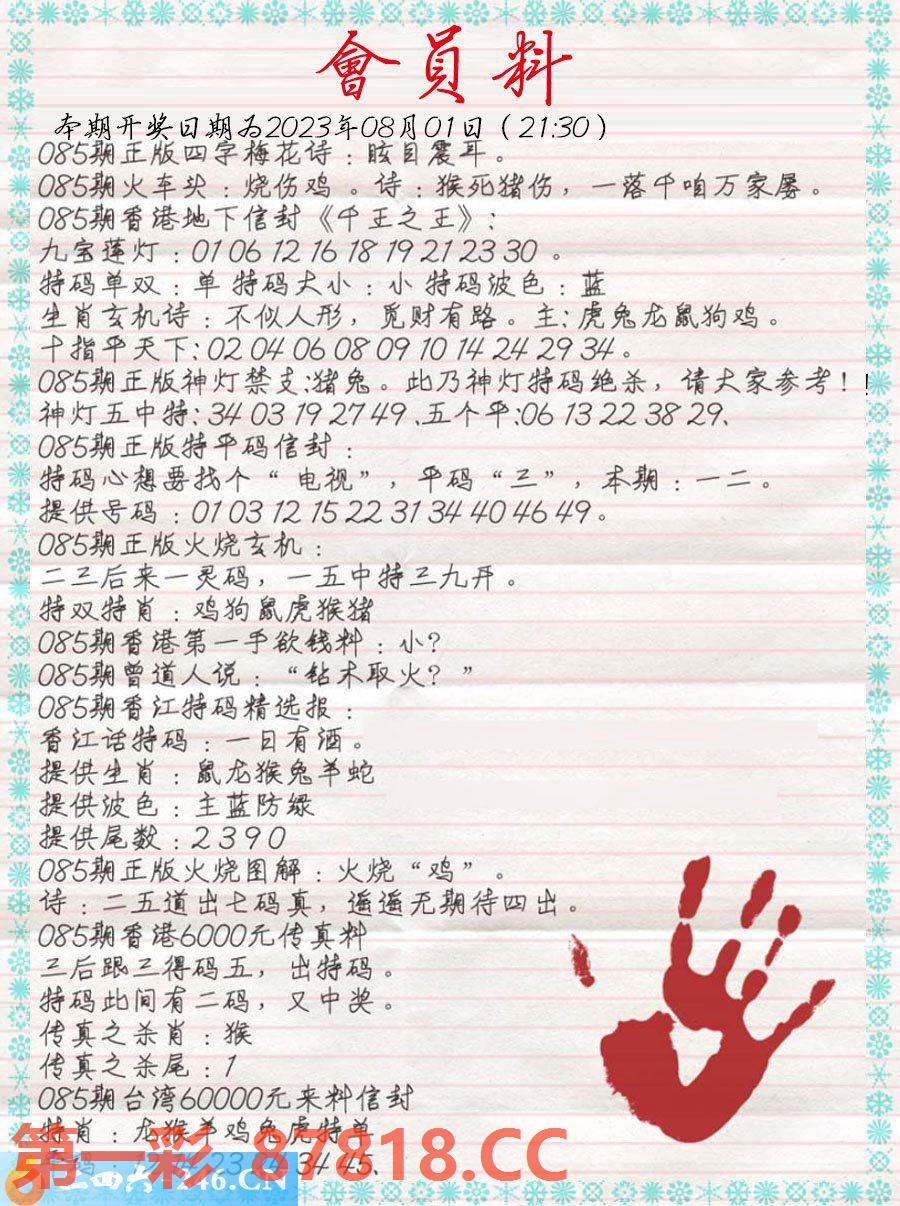 會員料
本期开奖日期为2023年08月01日（21:30）
085期正版四字梅花诗：眩目震耳。
085期火车头：烧伤鸡 。诗：猴死猪伤，一落千咱万家屡。
085期香港地下信封《千王之王》：
九宝莲灯：01 06 12 16 18 19 21 23 30 。
特码单双：单 特码大小：小 特码波色：蓝
生肖玄机诗：不似人形，觅财有路。主：虎兔龙鼠狗鸡。
十指平天下：02 04 06 08 09 10 14 24 29 34 。
085期正版神灯禁支：猪兔。此乃神灯特码绝杀，请大家参考！！
神灯五中特：34 03 19 27 49 、五个平：06 13 22 38 29、
085期正版特平码信封：
特码心想要找个“电视”，平码“三”，本期：一二。
提供号码：01 03 12 15 22 31 34 40 46 49 。
085期正版火烧玄机：
二三后来一灵码，一五中特三九开。
特双特肖：鸡狗鼠虎猴猪
085期香港第一手欲钱料：小？
085期曾道人说：“钻木取火？”
085期香江特码精选报：
香江话特码：一日有酒。
提供生肖：鼠龙猴兔羊蛇
提供波色：主蓝防绿
提供尾数：2 3 9 0
085期正版火烧图解：火烧“鸡”。
诗：二五道出七码真，遥遥无期待四出。
085期香港6000元传真料
三后跟三得码五，出特码。
特码此间有二码，又中奖。
传真之杀肖：猴
传真之杀尾：1
085期台湾60000元来料信封
特肖：龙猴羊鸡兔虎特单
23 34 45、
第一彩 87818.CC
二四六 246.CN